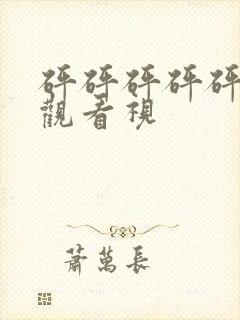 砰砰砰砰砰
觀看視
蕭萬長